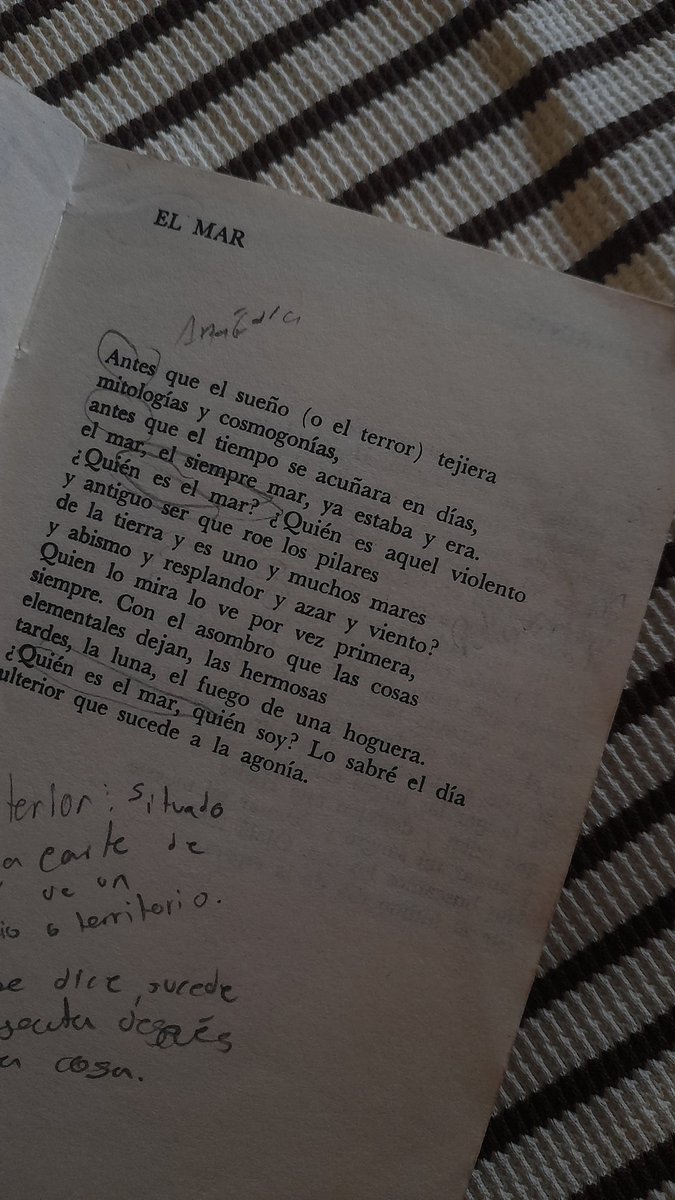 EL MAR
Antes que el sueño (o el terror) tejiera
mitologías y cosmogonías,
antes que el tiempo se acuñara en días,
el mar, el siempre mar, ya estaba y era.
¿Quién es el mar? ¿Quién es aquel violento
y antiguo ser que roe los pilares
de la tierra y es uno y muchos mares
y abismo y resplandor y azar y viento?
Quien lo mira lo ve por vez primera,
siempre. Con el asombro que las cosas
elementales dejan, las hermosas
tardes, la luna, el fuego de una hoguera.
¿Quién es el mar, quién soy? Lo sabré el día
ulterior que sucede a la agonía.
terior: situado
a parte de
de un
io o territorio.
se dice, sucede
después
a cosa.